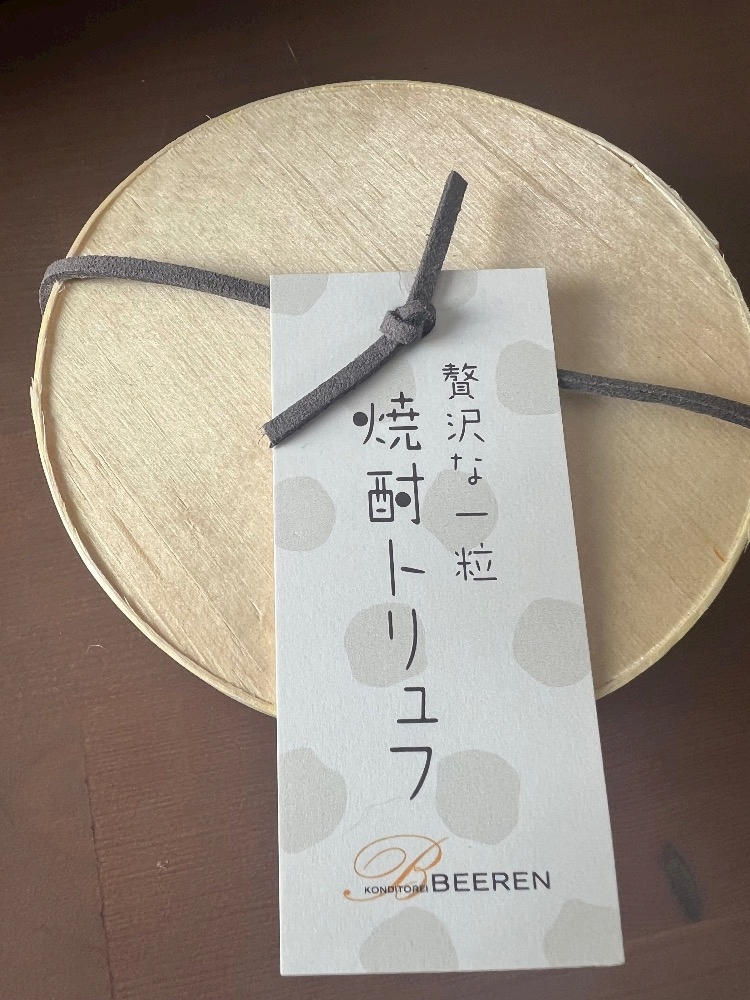 贅沢な一粒
焼酎トリュフ
B
KONDITOREI BEEREN